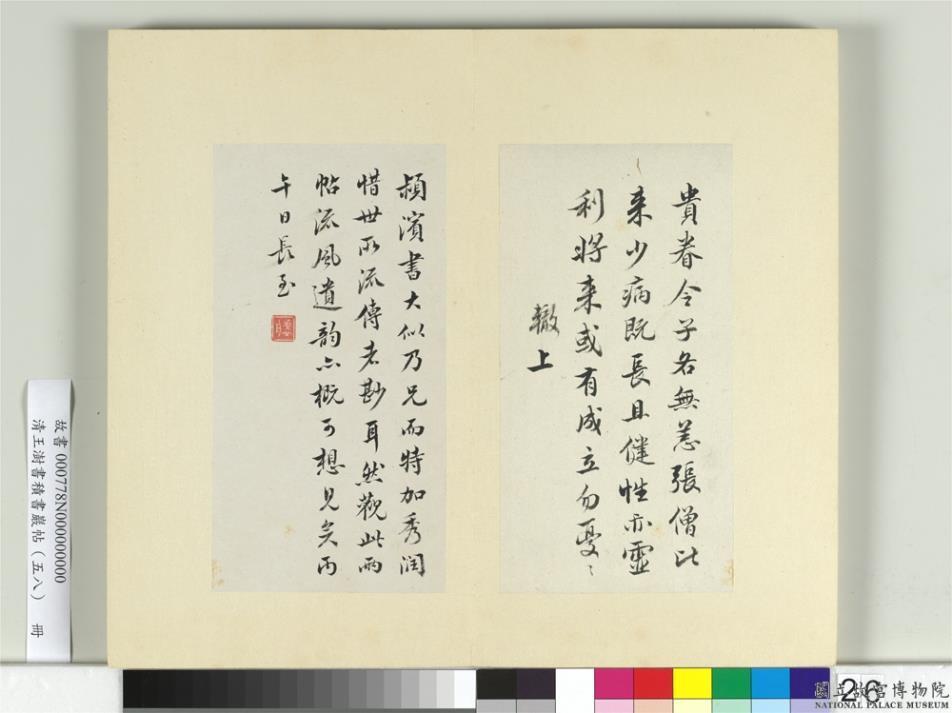 貴眷令子各無恙張僧比
來少病既長且健性亦靈
利將來或有成立勿憂〻
轍上
潁濱書大似乃兄而特加秀潤
惜世所流傳者尠耳然觀此兩
帖流風遺韵亦概可想見矣丙
午日長至
故書 000778N000000000
清王澍書積書巖帖(五八) 冊
26
國立故宮博物院
NATIONAL PALACE MUSEUM